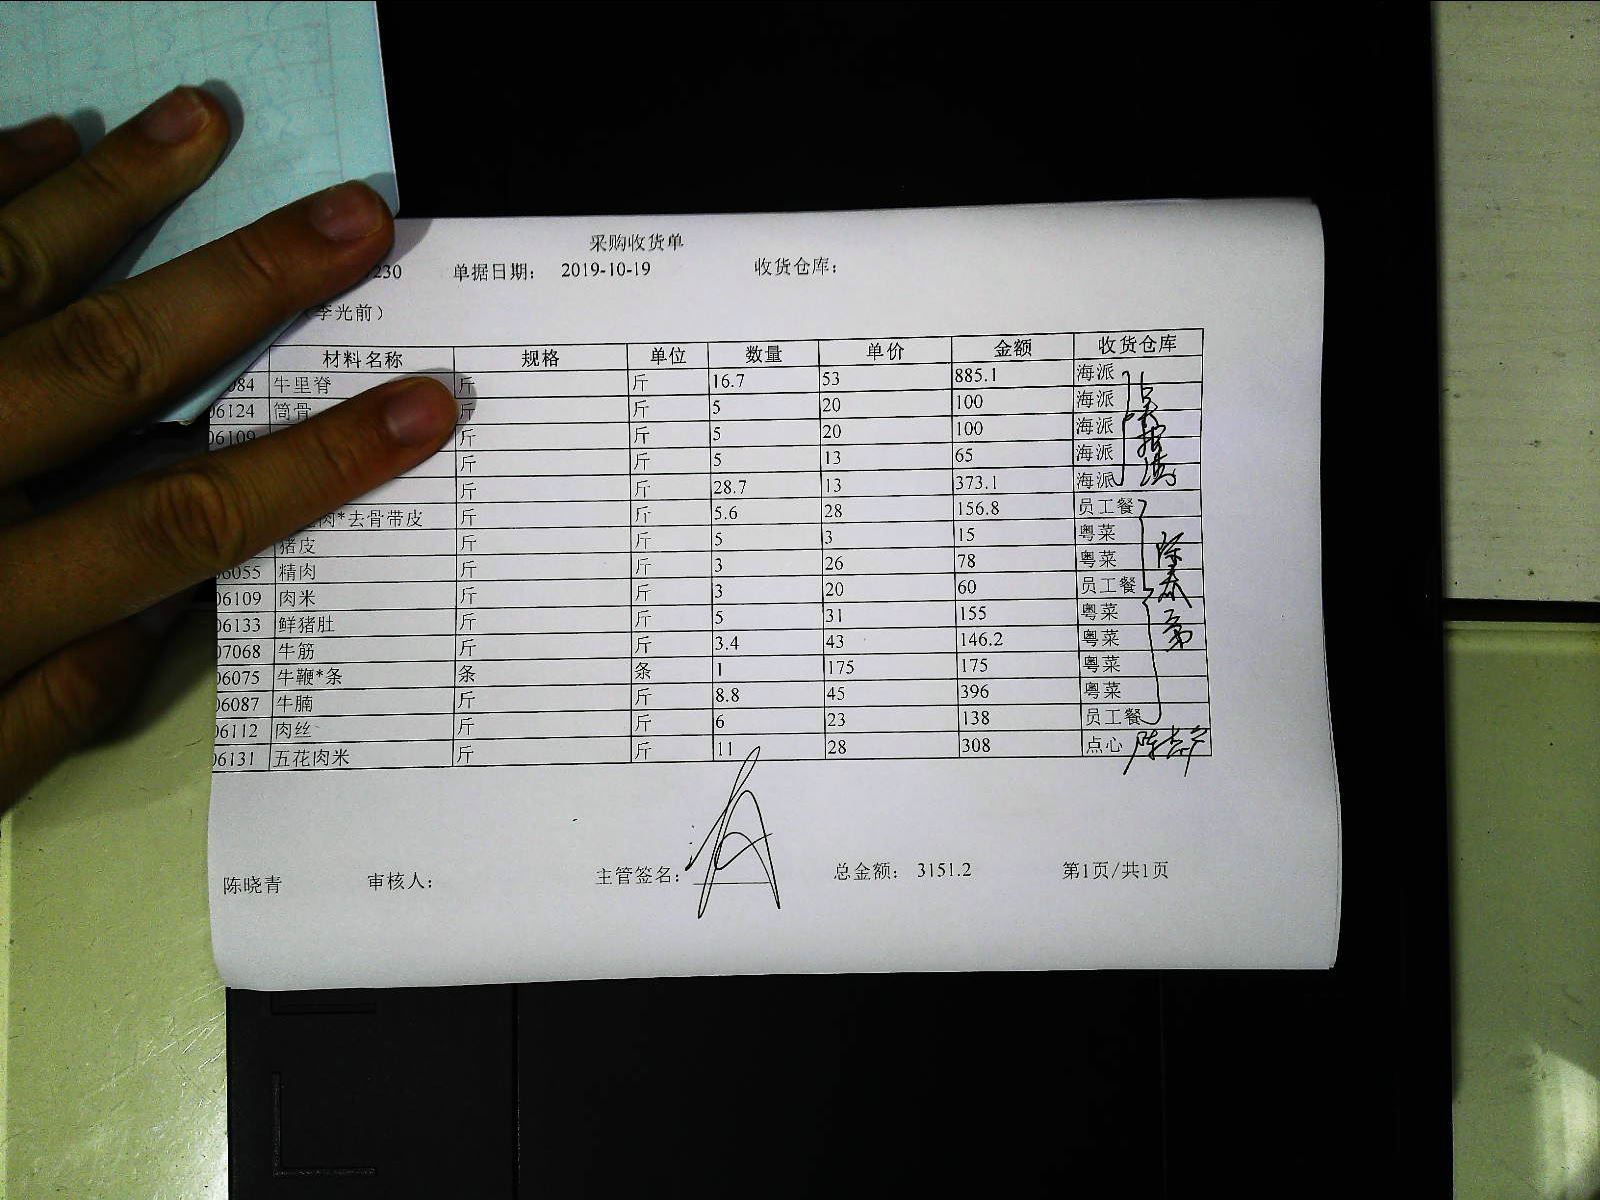 采购收货单
230 单据日期： 2019-10-19 收货仓库：
（李光前）
材料名称 规格 单位 数量 单价 金额 收货仓库
084 牛里脊 斤 斤 16.7 53 885.1 海派
06124 筒骨 斤 斤 5 20 100 海派
06109 斤 斤 5 20 100 海派
斤 斤 5 13 65 海派
斤 斤 28.7 13 373.1 海派
肉*去骨带皮 斤 斤 5.6 28 156.8 员工餐
猪皮 斤 斤 5 3 15 粤菜
06055 精肉 斤 斤 3 26 78 粤菜
06109 肉米 斤 斤 3 20 60 员工餐
06133 鲜猪肚 斤 斤 5 31 155 粤菜
07068 牛筋 斤 斤 3.4 43 146.2 粤菜
06075 牛鞭*条 条 条 1 175 175 粤菜
06087 牛腩 斤 斤 8.8 45 396 粤菜
06112 肉丝 斤 斤 6 23 138 员工餐
06131 五花肉米 斤 斤 11 28 308 点心
陈晓青 审核人： 主管签名： 总金额： 3151.2 第1页/共1页